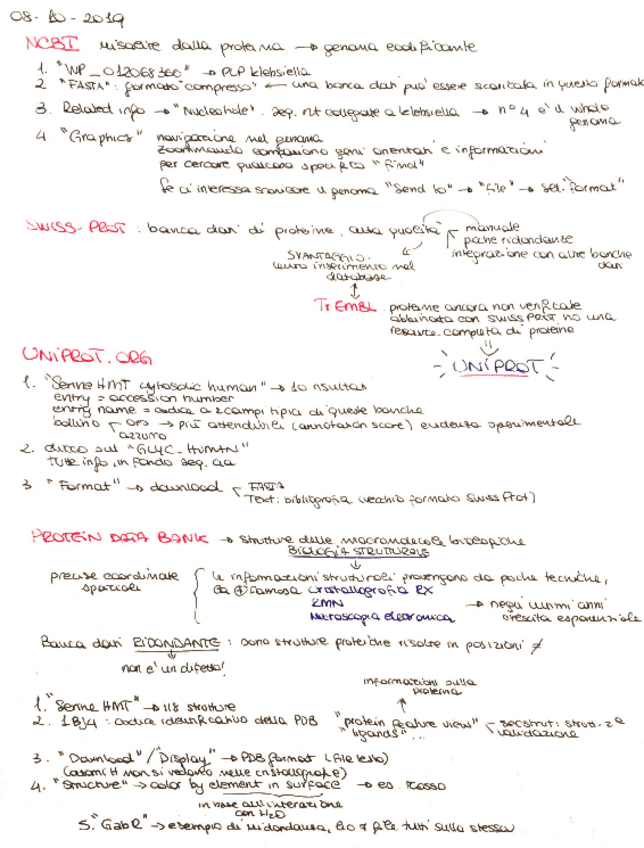 08-10-2019
NCBI risalire dalla proteina → genoma codificante
1. "WP_012068360" → PLP klebsiella
2 "FASTA": formato "compresso" ← una banca dati può essere scaricata in questo formato
3. Related info → "Nucleotide". seq. nt collegate a klebsiella → n° 4 e' il whole
genoma
4 "Graphics" navigazione nel genoma
zoommando compaiono geni orientati e informazioni
per cercare qualcosa specifico "find"
se ci interessa scaricare il genoma "Send to" → "file" → sel. "format"
SWISS-PROT : banca dati di proteine, alta qualità manuale
poche ridondante
integrazione con altre banche
dati
SVANTAGGIO:
lento inserimento nel
database
TrEMBL proteine ancora non verificate
abbinata con SWISS PROT ho una
completa di proteine
UNIPROT
UNIPROT.ORG
1. "Serine HMT cytosolic human" → 10 risultati
entry = accession number
entry name = codice a 2 campi tipici di queste banche
bollino oro → più attendibile (annotation score) evidenza sperimentale
azzurro
2. clicco sul "GLYC-HUMAN"
tutte info, in fondo seq. aa
3 "Format" → download FASTA
Text: bibliografia (vecchio formato Swiss Prot)
PROTEIN DATA BANK → strutture delle macromolecole biologiche
BIOLOGIA STRUTTURALE
precise coordinate
spaziali
le informazioni strutturali provengono da poche tecniche,
la + famosa cristallografia RX
RMN
Microscopia elettronica
→ negli ultimi anni
crescita esponenziale
Banca dati RIDONDANTE : sono strutture proteiche risolte in posizioni ≠
non e' un difetto!
informazioni sulla
proteina
1. "Serine HMT" → 118 strutture
2. 1BJ4 : codice identificativo della PDB "protein feature view" secstrut: strutt. 2a
"ligands"... validazione
3. "Download"/"Display" → PDB format (file testo)
(atomi H non si vedono nelle cristallografie)
4. "Structure" → color by element in surface → es. rosso
in base all'interazione
con H2O
5. "GabR" → esempio di ridondanza, tutti sulla stessa